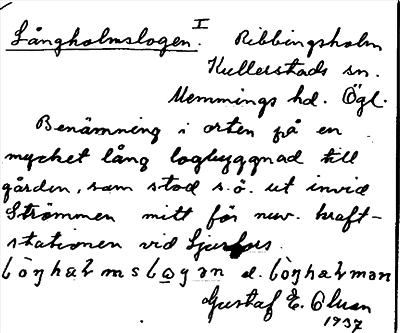 Långholmslogen. I Ribbingsholm
Kullerstads sn.
Memmings hd. Ögl.
Benämning i orten på en
mycket lång logbyggnad till
gården, som stod s.ö. ut invid
Strömmen mitt för nuv. kraft-
stationen vid Ljusfors.
d.
Gustaf E. Olsson
1937